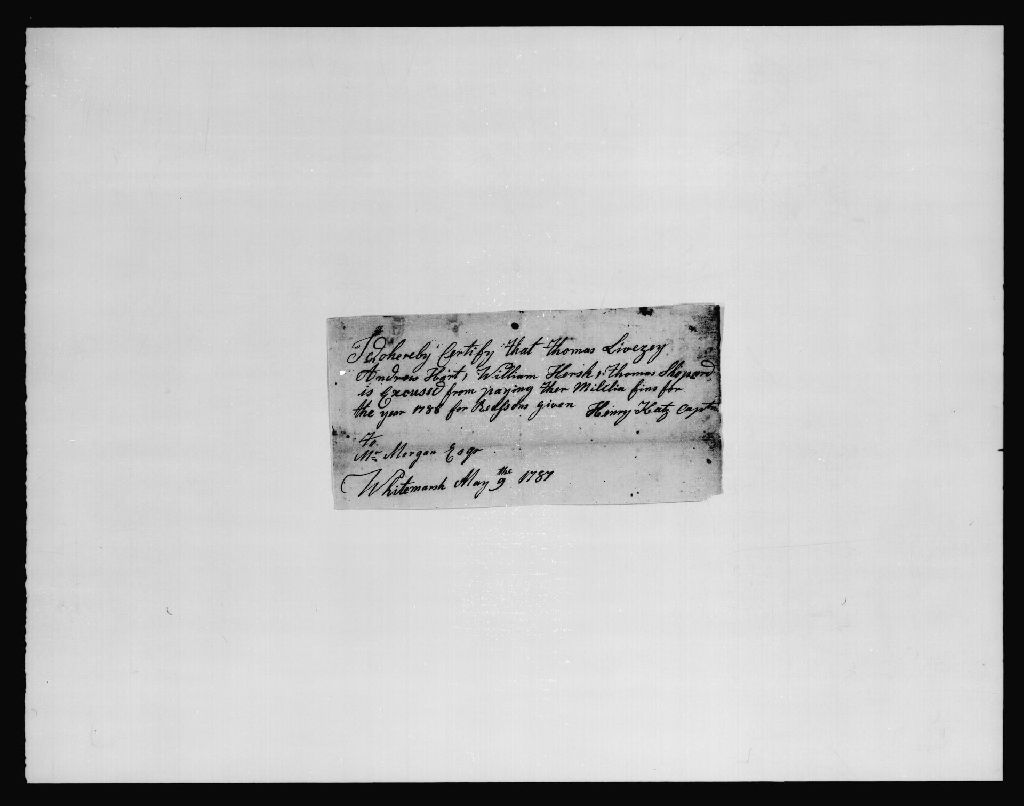 I do hereby Certify that Thomas Livezey
Andrew Hart, William Hersh, & Thomas Shepard
is Excused from paying ther Militia fine for
the year 1786 for Reassons given Henry Katz Captn
To
Mr Morgan Esqr
Whitemarsh May the 9 1787